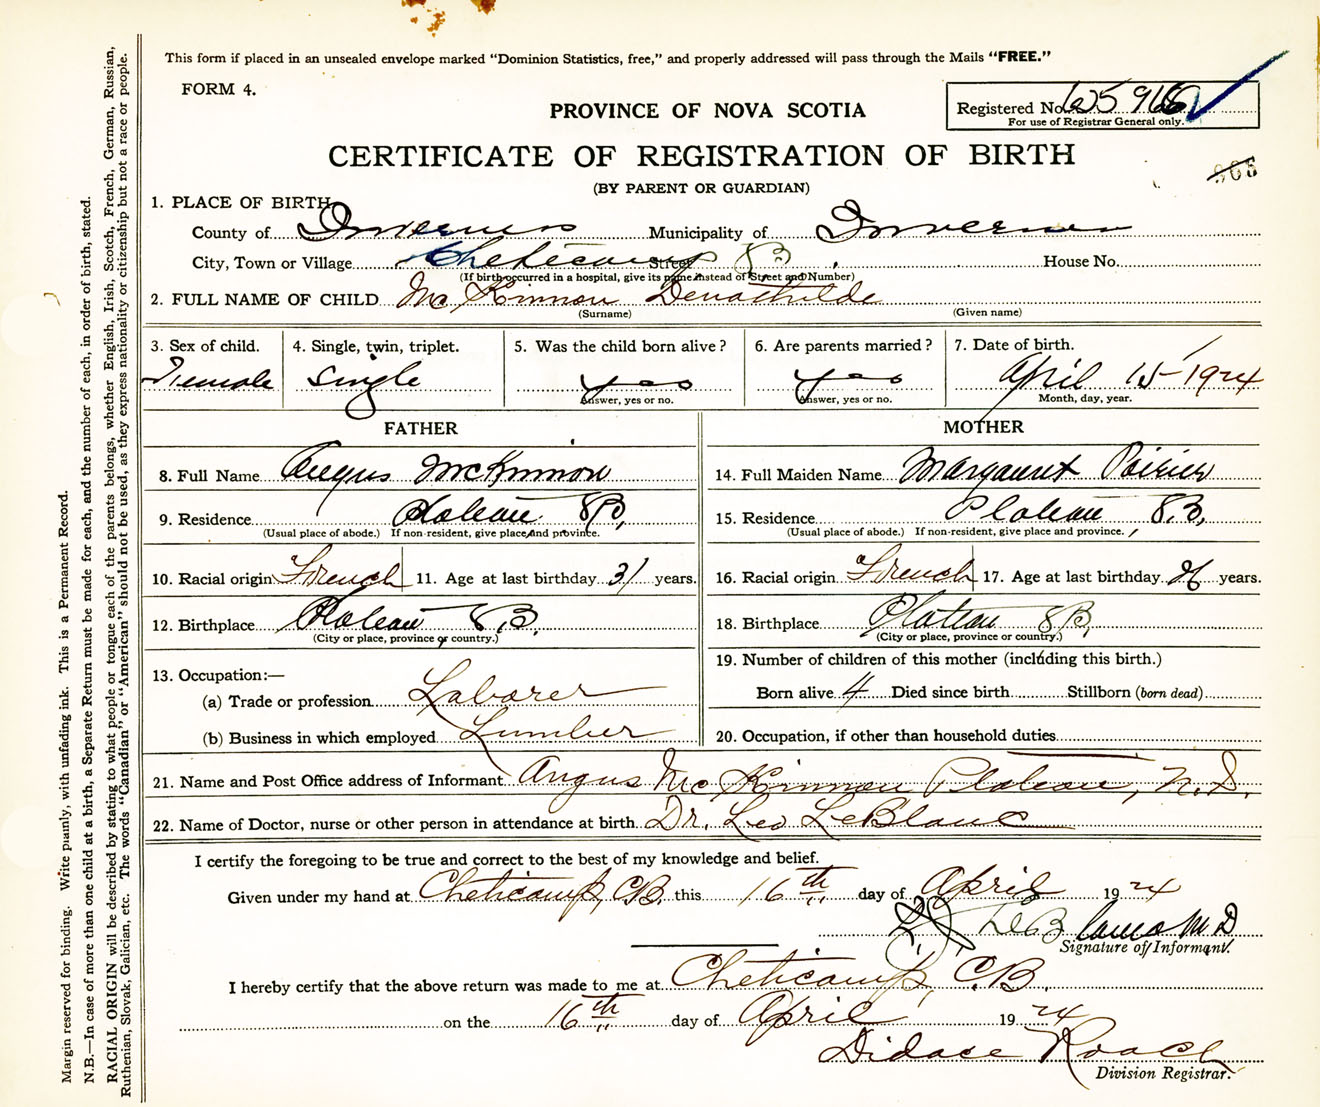 This form if placed in an unsealed envelope marked "Dominion Statistics, free," and properly addressed will pass through the Mails "FREE."
FORM 4.
PROVINCE OF NOVA SCOTIA
Registered No.
For use of Registrar General only.
CERTIFICATE OF REGISTRATION OF BIRTH
968
(BY PARENT OR GUARDIAN)
1. PLACE OF BIRTH
County of Inverness Municipality of Inverness
City, Town or Village Cheticamp Street House No.
(If birth occurred in a hospital, give its name instead of Street and Number)
2. FULL NAME OF CHILD McKinnon
(Surname) (Given name)
3. Sex of child. 4. Single, twin, triplet. 5. Was the child born alive? 6. Are parents married? 7. Date of birth.
Female Single yes yes April 15 1924
Answer, yes or no. Answer, yes or no. Month, day, year.
FATHER MOTHER
8. Full Name Angus McKinnon
14. Full Maiden Name Margaret Poirier
9. Residence Plateau
(Usual place of abode.) If non-resident, give place and province.
15. Residence Plateau
(Usual place of abode.) If non-resident, give place and province.
10. Racial origin French 11. Age at last birthday 31 years.
16. Racial origin French 17. Age at last birthday years.
12. Birthplace Plateau
(City or place, province or country.)
18. Birthplace Plateau
(City or place, province or country.)
13. Occupation:—
(a) Trade or profession Laborer
(b) Business in which employed Lumber
19. Number of children of this mother (including this birth.)
Born alive 4 Died since birth Stillborn (born dead)
20. Occupation, if other than household duties
21. Name and Post Office address of Informant Angus McKinnon Plateau, N.S.
22. Name of Doctor, nurse or other person in attendance at birth Dr. Leo LeBlanc
I certify the foregoing to be true and correct to the best of my knowledge and belief.
Given under my hand at Cheticamp, C.B. this 16th day of April 1924
M D
Signature of Informant.
I hereby certify that the above return was made to me at Cheticamp, C.B.
on the 16th day of April 1924
Didace Roach
Division Registrar.
Margin reserved for binding. Write plainly, with unfading ink. This is a Permanent Record.
N.B.—In case of more than one child at a birth, a Separate Return must be made for each, and the number of each, in order of birth, stated.
RACIAL ORIGIN will be described by stating to what people or tongue each of the parents belongs, whether English, Irish, Scotch, French, German, Russian,
Ruthenian, Slovak, Galician, etc. The words "Canadian" or "American" should not be used, as they express nationality or citizenship but not a race or people.